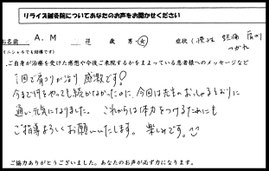 リライズ鍼灸院についてあなたのお声をお聞かせください
お名前 A.M 歳 男・女 症状(慢性 頭痛 肩の
(イニシャルでも結構です) つかれ
ご自身が治療を受けた感想や今後ご来院する方をまよっている患者様へのメッセージなど
1回で肩コリが治り感激です!
今まで何をやっても続かなかったのに、今回は先生のおしゃるとおりに
通い元気になりました。これからは体力をつけるためにも
ご指導よろしくお願いいたします。楽しみです。
ご協力ありがとうございました。あなたのお声が必ず力になります。